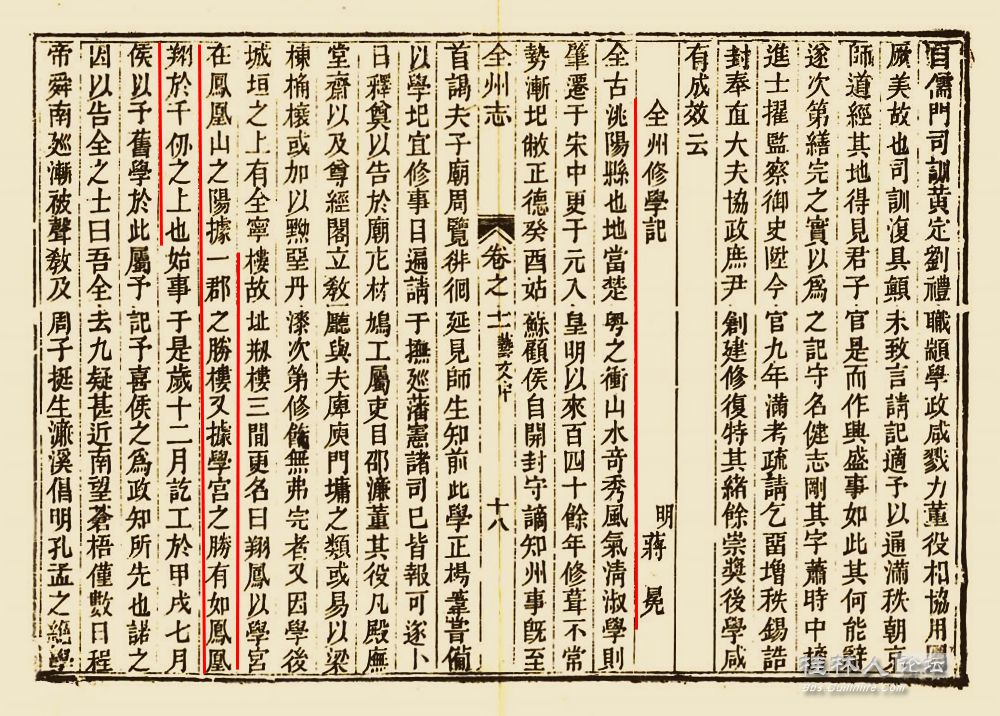 自儒門司訓黄定劉禮職顓學政咸戮力董役相協用
厥美故也司訓復具顛末致言請記適予以通滿秩朝京
師道經其地得見君子官是而作興盛事如此其何能辭
遂次第繕完之實以爲之記守名健志剛其字蕭時中擢
進士擢監察御史陞今官九年滿考疏請乞留增秩錫誥
封奉直大夫協政庶尹創建修復特其緒餘崇奬後學咸
有成效云
全州修學記
明蔣冕
全古洮陽縣也地當楚粵之衝山水奇秀風氣清淑學則
肇遷于宋中更于元入皇明以來百四十餘年修葺不常
勢漸圮敝正德癸酉姑蘇顧侯自開封守謫知州事旣至
全州志
卷之十一藝文
十八
首謁夫子廟周覽徘徊延見師生知前此學正楊葦嘗備
以學圮宜修事目遍請于撫廵藩憲諸司巳皆報可遂卜
日釋奠以告於廟庀材鳩工屬吏目邵濂董其役凡殿廡
堂齋以及尊經閣立敎廳與夫庫庾門墉之類或易以梁
棟桷榱或加以黝堊丹漆次第修飾無弗完者又因學後
城垣之上有全寧樓故址剏樓三間更名曰翔鳳以學宮
在鳳凰山之陽據一郡之勝樓又據學宮之勝有如鳳凰
翔於千仞之上也始事于是歲十二月訖工於甲戌七月
侯以予舊學於此屬予記予喜侯之爲政知所先也諾之
因以告全之士曰吾全去九疑甚近南望蒼梧僅數日程
帝舜南廵漸被聲敎及周子挺生濂溪倡明孔孟之絕學
桂林人论坛
bbs.guilinlife.com